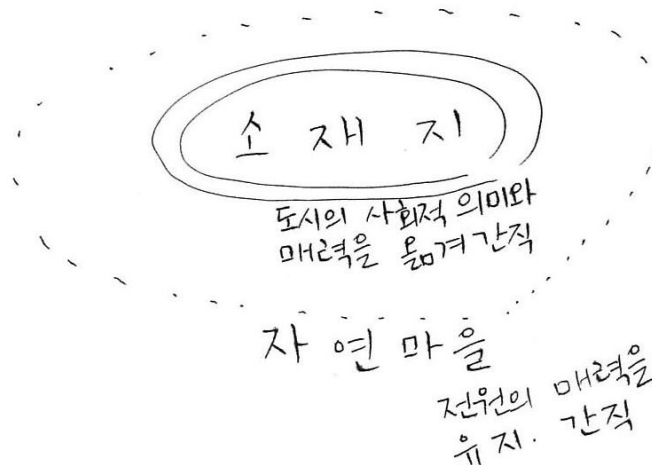 소재지
도시의 사회적 의미와
매력을 옮겨 간직
자연마을
전원의 매력을
유지. 간직